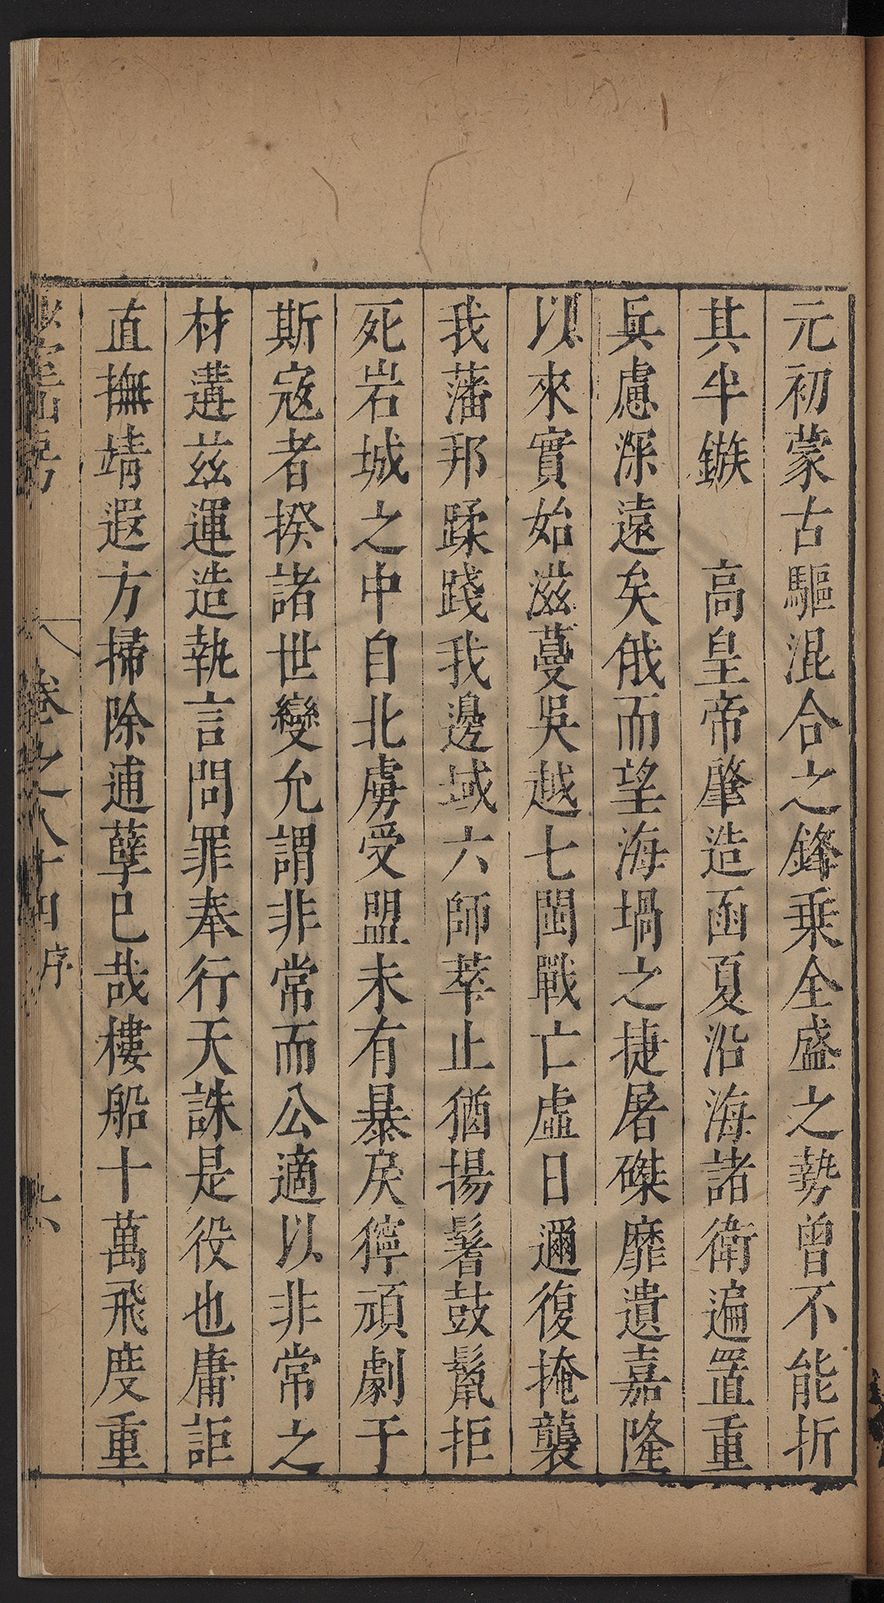 元初蒙古驅混合之鋒乗全盛之勢曾不能折
其半鏃　高皇帝肇造函夏沿海諸衛遍置重
兵慮深遠矣俄而望海堝之捷屠磔靡遺嘉隆
以來實始滋蔓吳越七閩戰亡虛日邇復掩襲
我藩邦蹂踐我邊域六師萃止猶揚鬐鼓鬣拒
死岩城之中自北虜受盟未有暴戾獰頑劇于
斯寇者揆諸世變允謂非常而公適以非常之
材遘茲運造執言問罪奉行天誅是役也庸詎
直撫靖遐方掃除逋孽已哉樓船十萬飛度重
卷之八十四 序 六